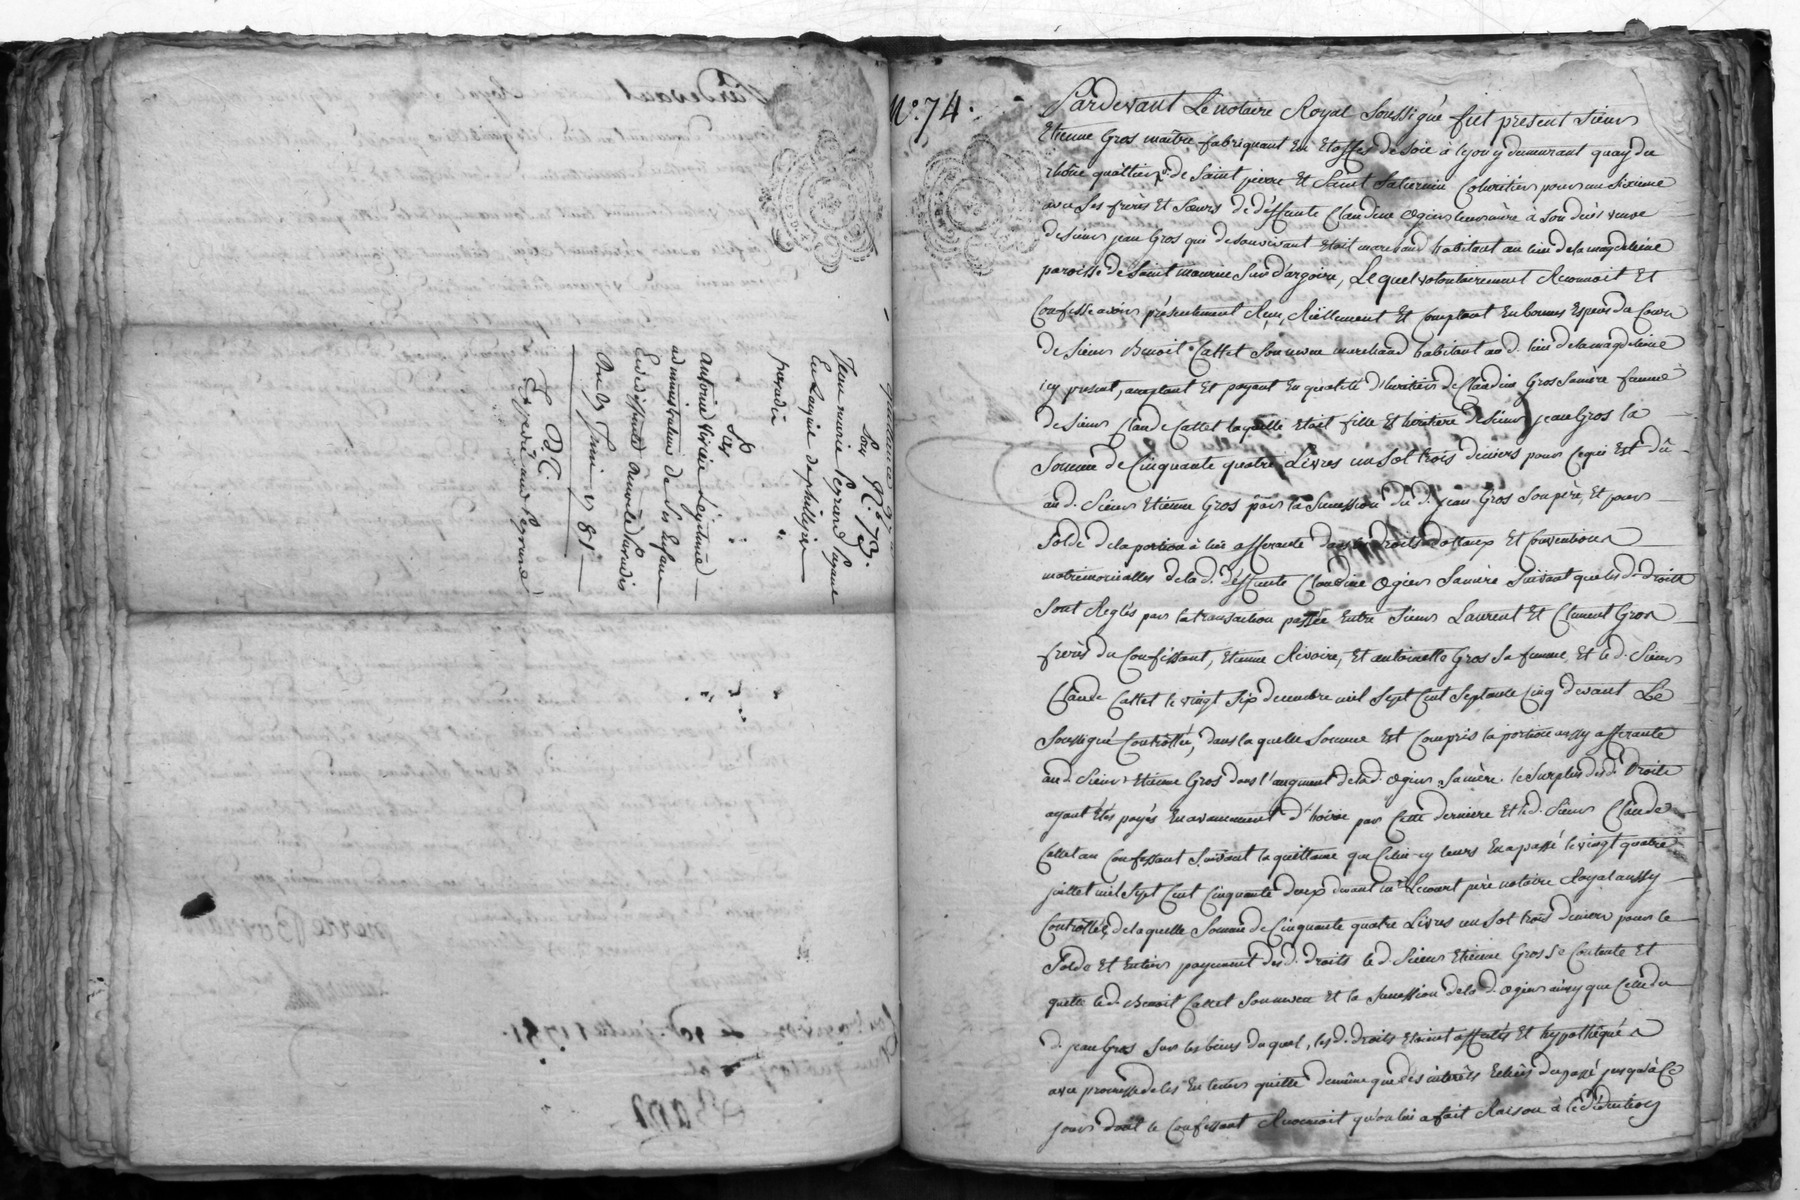 quittance
N.º 73.
Pour
Jeanne marie Peyrard
En Laquie de phillipine
paradis
Les
antoine Virieu Legitime
administrateur de Ses Enfans
Et de deffunte Benoite Paradis
Du 29 Juin 1781
D. C.
N.º 74.
Pardevant Le notaire Royal Soussigné fut present Sieur
Etienne Gros maitre fabriquant En Etoffes de Soie à lyon y demeurant quay du
rhône quâttier de Saint pierre Et Saint Saturnin Coheritier pour un Sixieme
avec Ses freres Et Soeurs de deffunte Claudine Ogier leur mère à Son décès veuve
de Sieur jean Gros qui de Son vivant Etoit marchand habitant au lieu de la magdeleine
paroisse de Saint maurice Sur d'argoire, Lequel volontairement Reconnoit Et
Confesse avoir présentement Reçu, Réellement Et Comptant En bonnes Espèces du Cours
de Sieur Benoit Cattet Son neveu marchand habitant aud. lieu de la magdeleine
icy present, acceptant Et payant En qualité d'heritier de Claudine Gros Sa mère femme
de Sieur Claude Cattet laquelle Etoit fille Et heritiere de Sieur jean Gros la
Somme de Cinquante quatre Livres un Sol trois deniers pour Ce qui Est dû
aud. Sieur Etienne Gros par la Succession dud. jean Gros Son père, Et pour
Solde de la portion à lui afferante dans les droits dottaux Et Conventions
matrimonialles de la d. deffunte Claudine Ogier Sa mère Suivant que lesd. droits
Sont Reglés par la transaction passée Entre Sieurs Laurent Et Clement Gros
freres du Confessant, Etienne Rivoire, Et antoinette Gros Sa femme, Et led. Sieur
Claude Cattet le vingt Six decembre mil Sept Cent Septante Cinq devant Le
Soussigné Controllée, dans laquelle Somme Est Compris la portion aussy afferante
aud. Sieur Etienne Gros dans l'augment de lad. Ogier Sa mère. le Surplus desd. Droits
ayant Etés payés En avancement d'hoirie par Cette derniere Et led. Sieur Claude
Cattet au Confessant Suivant la quittance que Celui-cy leurs En a passé le vingt quatre
juillet mil Sept Cent Cinquante deux devant me. Lecourt père notaire Royal aussy
Controllée, de laquelle Somme de Cinquante quatre Livres un Sol trois deniers pour le
Solde Et Entier payement desd. droits led. Sieur Etienne Gros Se Contente Et
quitte led. Benoit Cattet Son neveu Et la Succession de lad. Ogier ainsy que Celle du
d. jean Gros Sur les biens duquel, lesd. droits Etoient affectés Et hypothéqués
avec promesse de les En tenir quitte de même que des intérêts Echus du passé jusqu'à Ce
jour dont le Confessant Reconnoit qu'on lui a fait Raison à la déduction